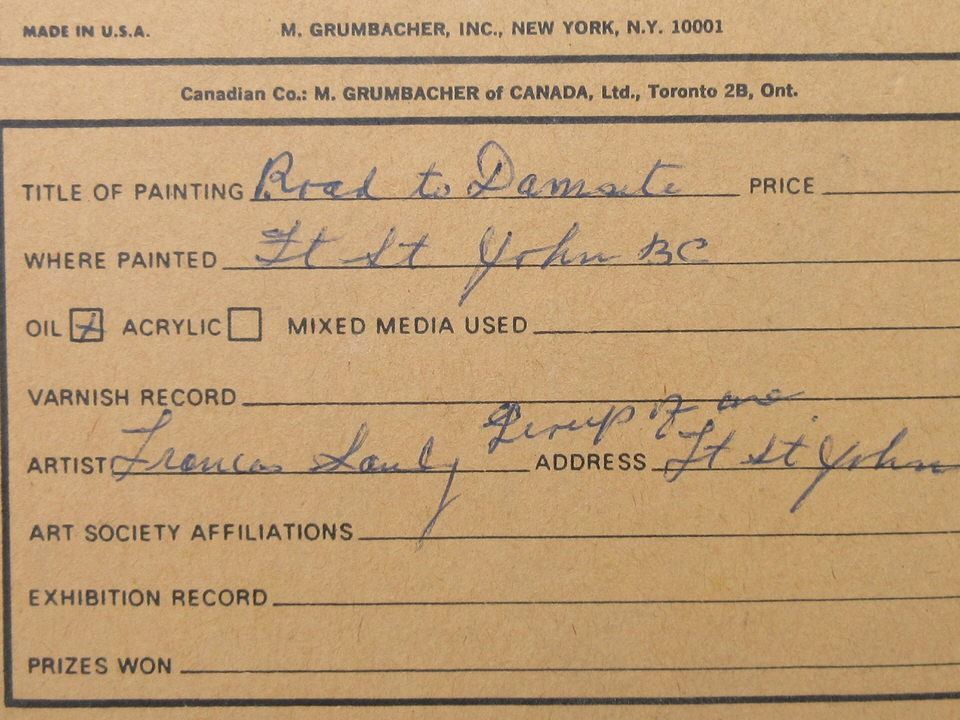 MADE IN U.S.A. M. GRUMBACHER, INC., NEW YORK, N.Y. 10001
Canadian Co.: M. GRUMBACHER of CANADA, Ltd., Toronto 2B, Ont.
TITLE OF PAINTING Road to Damsite PRICE
WHERE PAINTED Ft St John BC
OIL x ACRYLIC MIXED MEDIA USED
VARNISH RECORD
Group of one
ARTIST Frances ADDRESS Ft St John
ART SOCIETY AFFILIATIONS
EXHIBITION RECORD
PRIZES WON